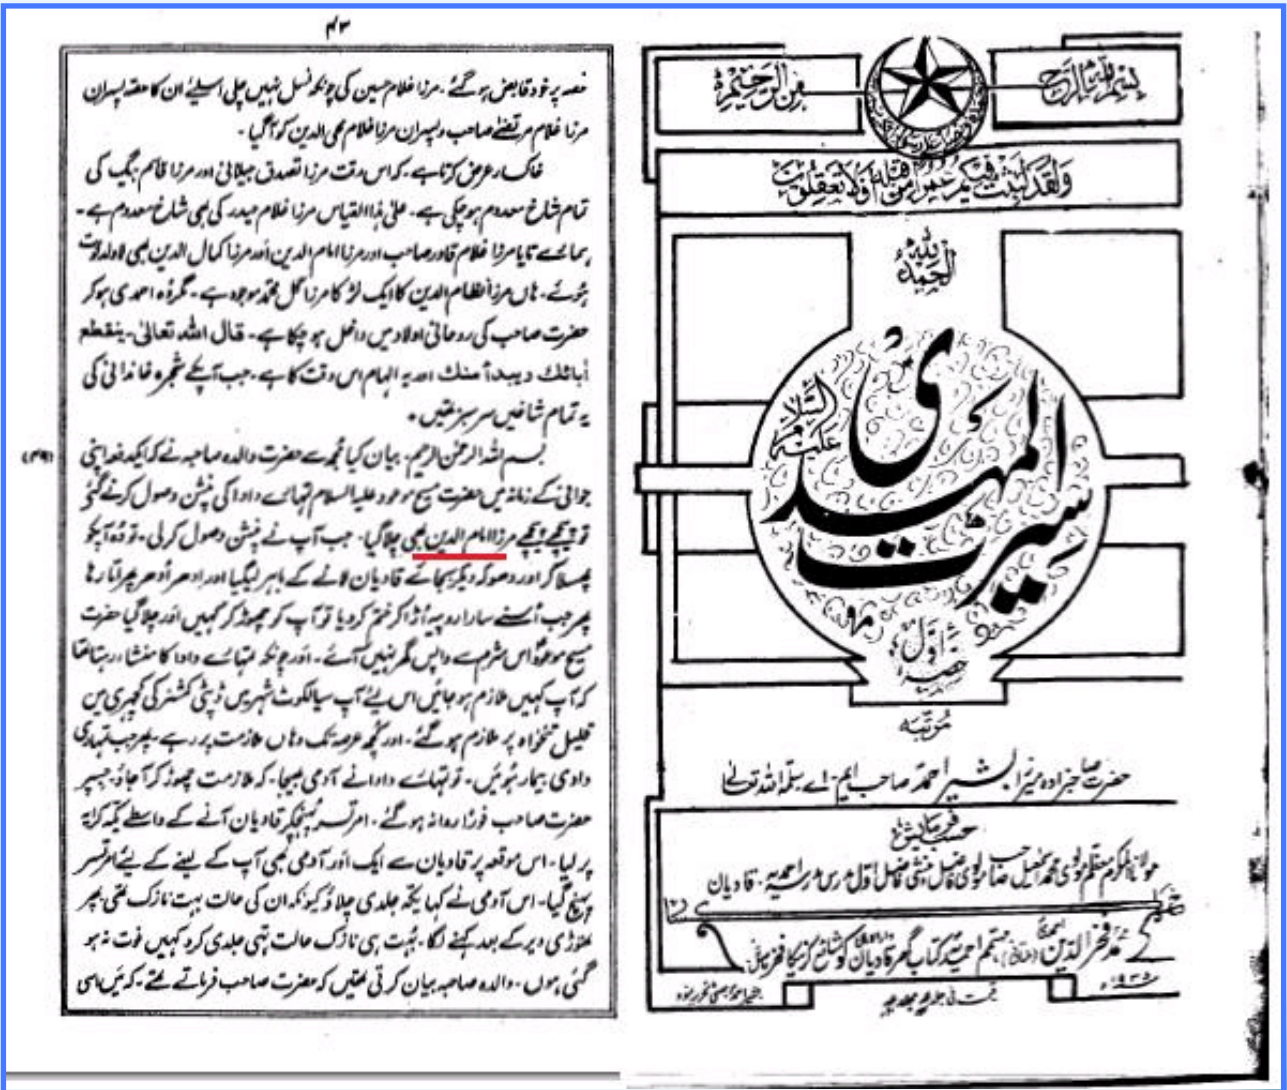 بسم اللہ الرحمن الرحیم
ولقد لبثت فیکم عمرا من قبلہ افلا تعقلون
الحمد للہ
سیرت المہدی
علیہ السلام
حصہ اول
مرتبہ
حضرت صاحبزادہ میرزا بشیر احمد صاحب ایم۔ اے سلمہ اللہ تعالیٰ
حسب فرمایش
مولانا المکرم معظم مولوی محمد اسمٰعیل صاحب مولوی فاضل و منشی فاضل اول مدرس مدرسہ احمدیہ۔ قادیان
محمد فخر الدین مہتمم احمدیہ کتاب گھر قادیان
۱۹۳۵ء
۴۳
حصہ پر خود قابض ہو گئے۔ مرزا غلام حسین کی چونکہ نسل نہیں چلی اسلیئے ان کا حصہ پسران
مرزا غلام مرتضےٰ صاحب و پسران مرزا غلام محی الدین کو آگیا۔
خاکسار عرض کرتا ہے۔ کہ اس وقت مرزا تصدق جیلانی اور مرزا قاسم بیگ کی
تمام شاخ معدوم ہو چکی ہے۔ علیٰ ہذا القیاس مرزا غلام حیدر کی بھی شاخ معدوم ہے۔
ہمارے تایا مرزا غلام قادر صاحب اور مرزا امام الدین اور مرزا کمال الدین بھی لاولد فوت
ہوئے۔ ہاں مرزا نظام الدین کا ایک لڑکا مرزا گل محمد موجود ہے۔ مگر وہ احمدی ہو کر
حضرت صاحب کی روحانی اولاد میں داخل ہو چکا ہے۔ قال اللہ تعالیٰ۔ ینقطع
اٰبائک ویبدأ منک اور یہ الہام اس وقت کا ہے۔ جب آپکے شجرہ خاندانی کی
یہ تمام شاخیں سرسبز تھیں۔
(۴۹) بسم اللہ الرحمن الرحیم۔ بیان کیا مجھ سے حضرت والدہ صاحبہ نے کہ ایک دفعہ اپنی
جوانی کے زمانہ میں حضرت مسیح موعود علیہ السلام تمہارے دادا کی پنشن وصول کرنے گئے
تو پیچھے پیچھے مرزا امام الدین بھی چلا گیا۔ جب آپ نے پنشن وصول کر لی۔ تو وہ آپکو
پھسلا کر اور دھوکہ دیکر بجائے قادیان لانے کے باہر لیگیا اور ادھر اُدھر پھراتا رہا
پھر جب اُسنے سارا روپیہ اُڑا کر ختم کر دیا تو آپ کو چھوڑ کر کہیں اور چلا گیا حضرت
مسیح موعودؑ اس شرم سے واپس گھر نہیں آئے۔ اور چونکہ تمہارے دادا کا منشاء رہتا تھا
کہ آپ کہیں ملازم ہو جائیں اس لئے آپ سیالکوٹ شہر میں ڈپٹی کمشنر کی کچہری میں
قلیل تنخواہ پر ملازم ہو گئے۔ اور کچھ عرصہ تک وہاں ملازمت پر رہے۔ پھر جب تمہاری
دادی بیمار ہوئیں۔ تو تمہارے دادا نے آدمی بھیجا۔ کہ ملازمت چھوڑ کر آجاؤ۔ جسپر
حضرت صاحب فوراً روانہ ہو گئے۔ امرتسر پہنچکر قادیان آنے کے واسطے یکہ کرایہ
پر لیا۔ اس موقعہ پر قادیان سے ایک اور آدمی بھی آپ کے لینے کے لئے امرتسر
پہنچ گیا۔ اس آدمی نے کہا یکہ جلدی چلاؤ کیونکہ ان کی حالت بہت نازک تھی۔ پھر
تھوڑی دیر کے بعد کہنے لگا۔ بہت ہی نازک حالت تھی جلدی کرو کہیں فوت نہ ہو
گئی ہوں۔ والدہ صاحبہ بیان کرتی تھیں کہ حضرت صاحب فرماتے تھے۔ کہ میں اسی